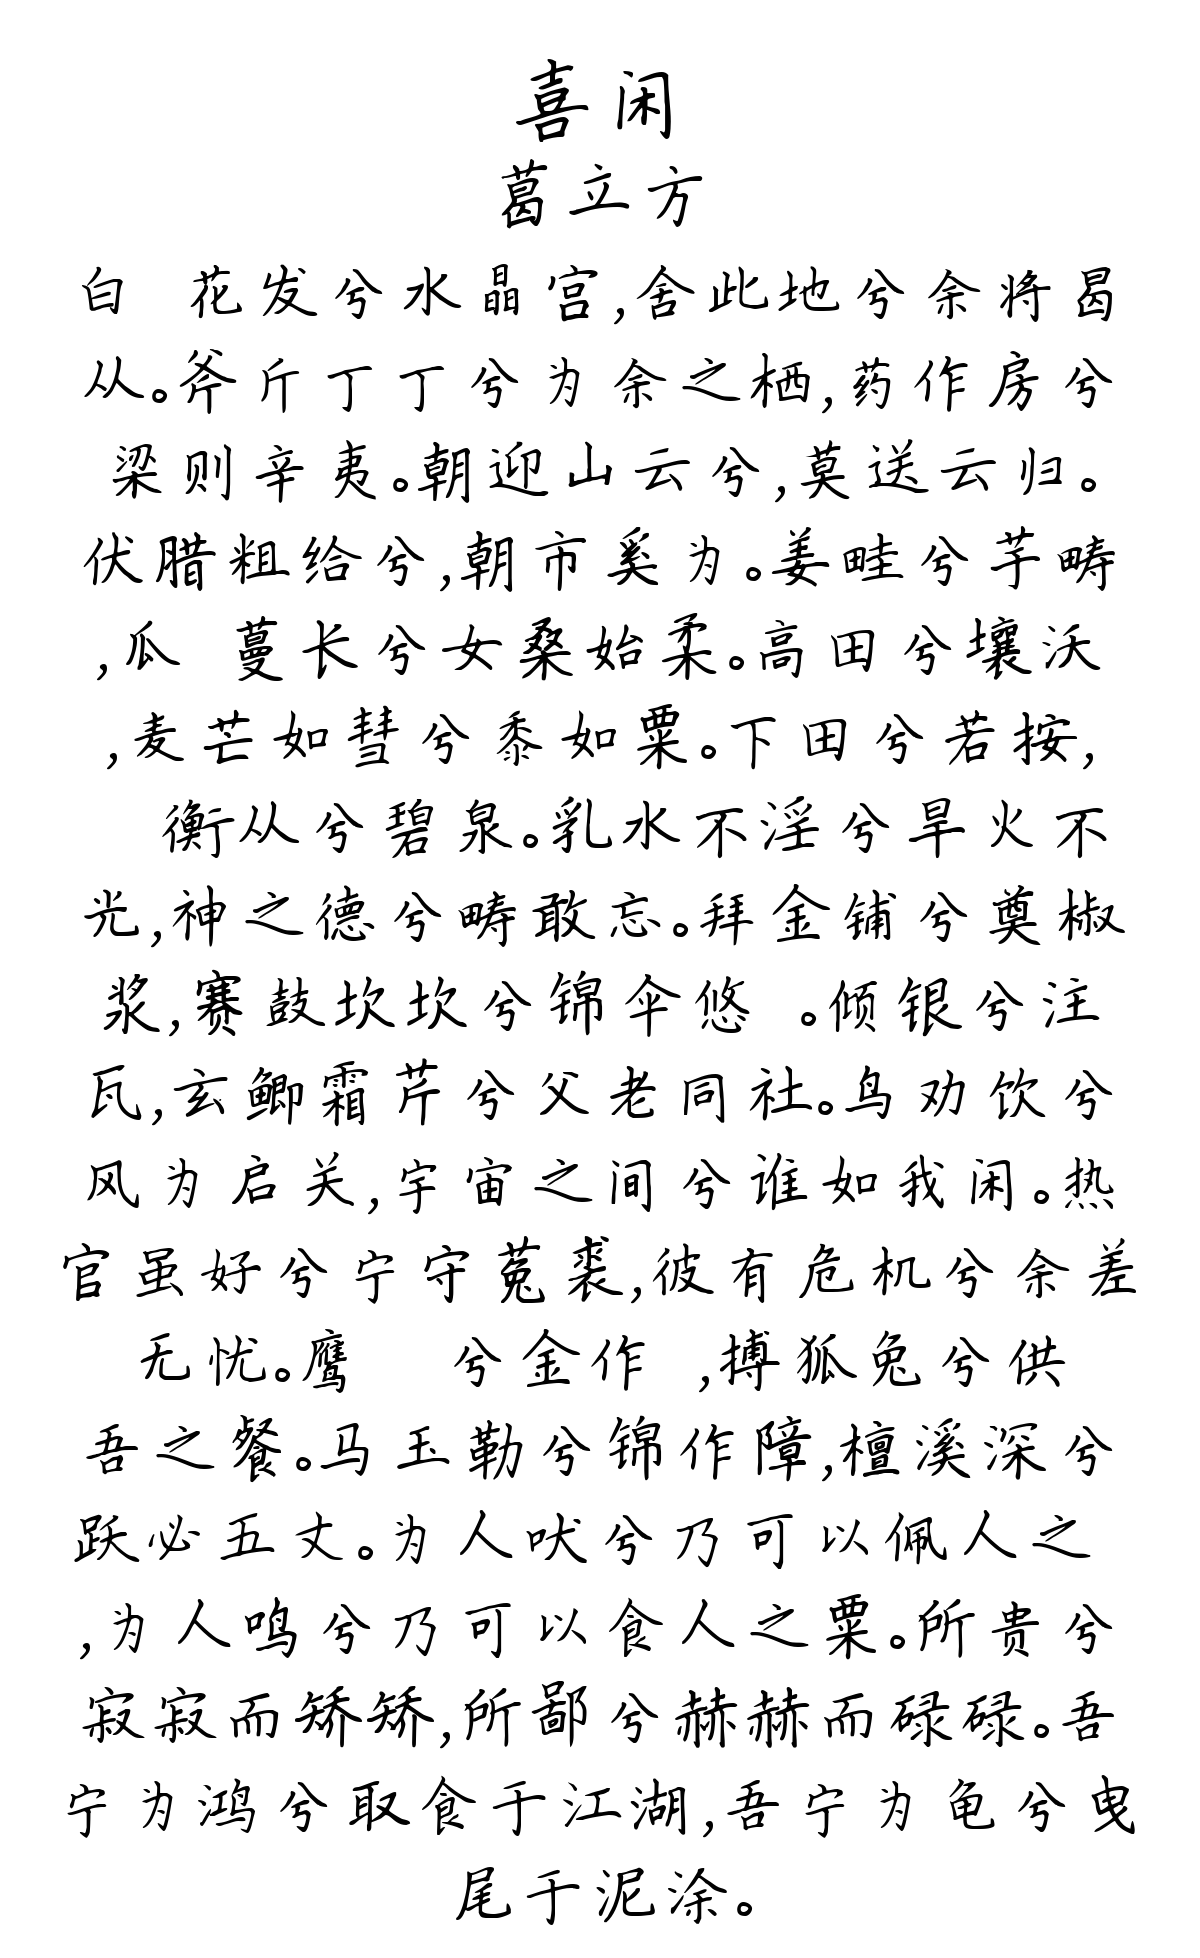 喜闲
葛立方
白 花发兮水晶宫,舍此地兮余将曷
从。斧斤丁丁兮为余之栖,药作房兮
梁则辛夷。朝迎山云兮,莫送云归。
伏腊粗给兮,朝市奚为。姜畦兮芋畴
,瓜 蔓长兮女桑始柔。高田兮壤沃
,麦芒如彗兮黍如粟。下田兮若按,
衡从兮碧泉。乳水不淫兮旱火不
光,神之德兮畴敢忘。拜金铺兮奠椒
浆,赛鼓坎坎兮锦伞悠 。倾银兮注
瓦,玄鲫霜芹兮父老同社。鸟劝饮兮
风为启关,宇宙之间兮谁如我闲。热
官虽好兮宁守菟裘,彼有危机兮余差
无忧。鹰 兮金作 ,搏狐兔兮供
吾之餐。马玉勒兮锦作障,檀溪深兮
跃必五丈。为人吠兮乃可以佩人之
,为人鸣兮乃可以食人之粟。所贵兮
寂寂而矫矫,所鄙兮赫赫而碌碌。吾
宁为鸿兮取食于江湖,吾宁为龟兮曳
尾于泥涂。